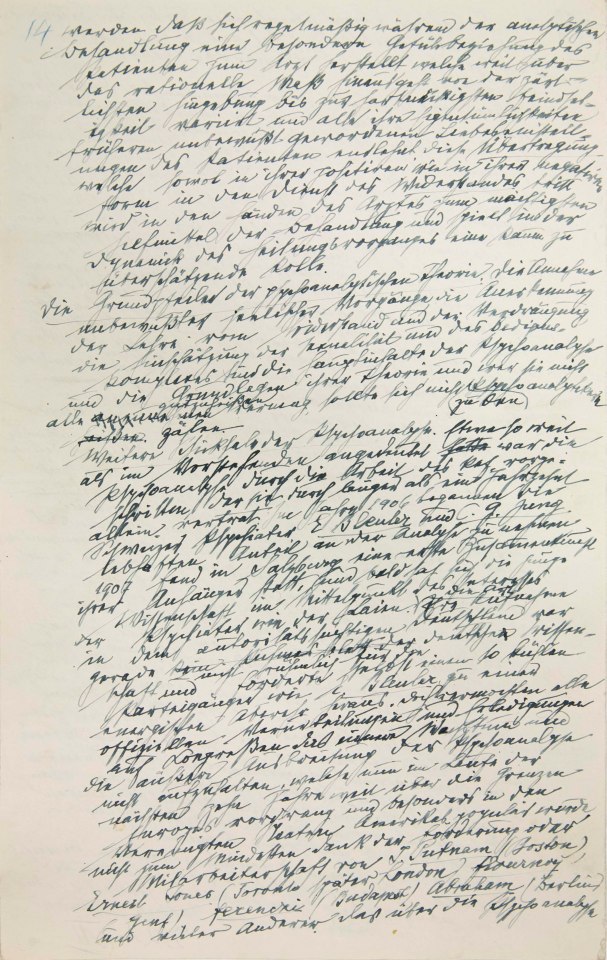 14 werden daß sich regelmäßig während der analytischen
Behandlung eine besondere Gefühlsbeziehung des
Patienten zum Arzt herstellt welche weit über
das rationelle Maß hinausgeht von der zärt-
lichsten Hingebung bis zur hartnäckigsten Feindsel-
igkeit variirt und alle ihre Eigentümlichkeiten
früheren unbewußt gewordenen Liebeseinstell-
ungen des Patienten entlehnt. Diese Übertragung
welche sowol in ihrer positiven wie in ihrer negativen
Form in den Dienst des Widerstandes tritt
wird in den Händen des Arztes zum mächtigsten
Hilfsmittel der Behandlung und spielt in der
Dynamik des Heilungsvorganges eine kaum zu
überschätzende Rolle.
Die Grundpfeiler der psychoanalytischen Theorie. Die Annahme
unbewußter seelischer Vorgänge, die Anerkennung
der Lehre vom Widerstand und der Verdrängung
die Einschätzung der Sexualität und des Oedipus-
komplexes sind die Hauptinhalte der Psychoanalyse
und die Grundlagen ihrer Theorie und wer sie nicht
alle gutzuheißen vermag sollte sich nicht Psychoanalytikern
(zu den)
zählen.
Weitere Schicksale der Psychoanalyse. Etwa so weit
als im Vorstehenden angedeutet war die
Psychoanalyse durch die Arbeit des Ref. vorge-
schritten der sie durch länger als ein Jahrzehnt
allein vertrat. Im Jahre 1906 begannen die
Schweizer Psychiater E Bleuler und C. G. Jung
lebhaften Anteil an der Analyse zu nehmen
1907 fand in Salzburg eine erste Zusammenkunft
ihrer Anhänger statt, und bald sah sich die junge
Wissenschaft im Mittelpunkt des Interesses
der Psychiater wie der Laien. Die Art der Aufnahme
in dem autoritätssüchtigen Deutschland war
gerade nicht rühmlich für die deutsche Wissen-
schaft und forderte selbst einen so kühlen
Parteigänger wie E Bleuler zu einer
energischen Abwehr heraus. Doch vermochten alle
offiziellen Verurteilungen und Erledigungen
auf Kongreßen das innere Wachstum und
die äußere Ausbreitung der Psychoanalyse
nicht aufzuhalten, welche nun im Laufe der
nächsten zehn Jahre weit über die Grenzen
Europas vordrang und besonders in den
Vereinigten Staaten Amerikas populär wurde,
nicht zum mindesten dank der Förderung oder
Mitarbeiterschaft von J. Putnam (Boston)
Ernest Jones (Toronto später London) Flournoy,
Genf) Ferenczi (Budapest) Abraham (Berlin)
und vieler Anderer. Das über die Psychoanalyse